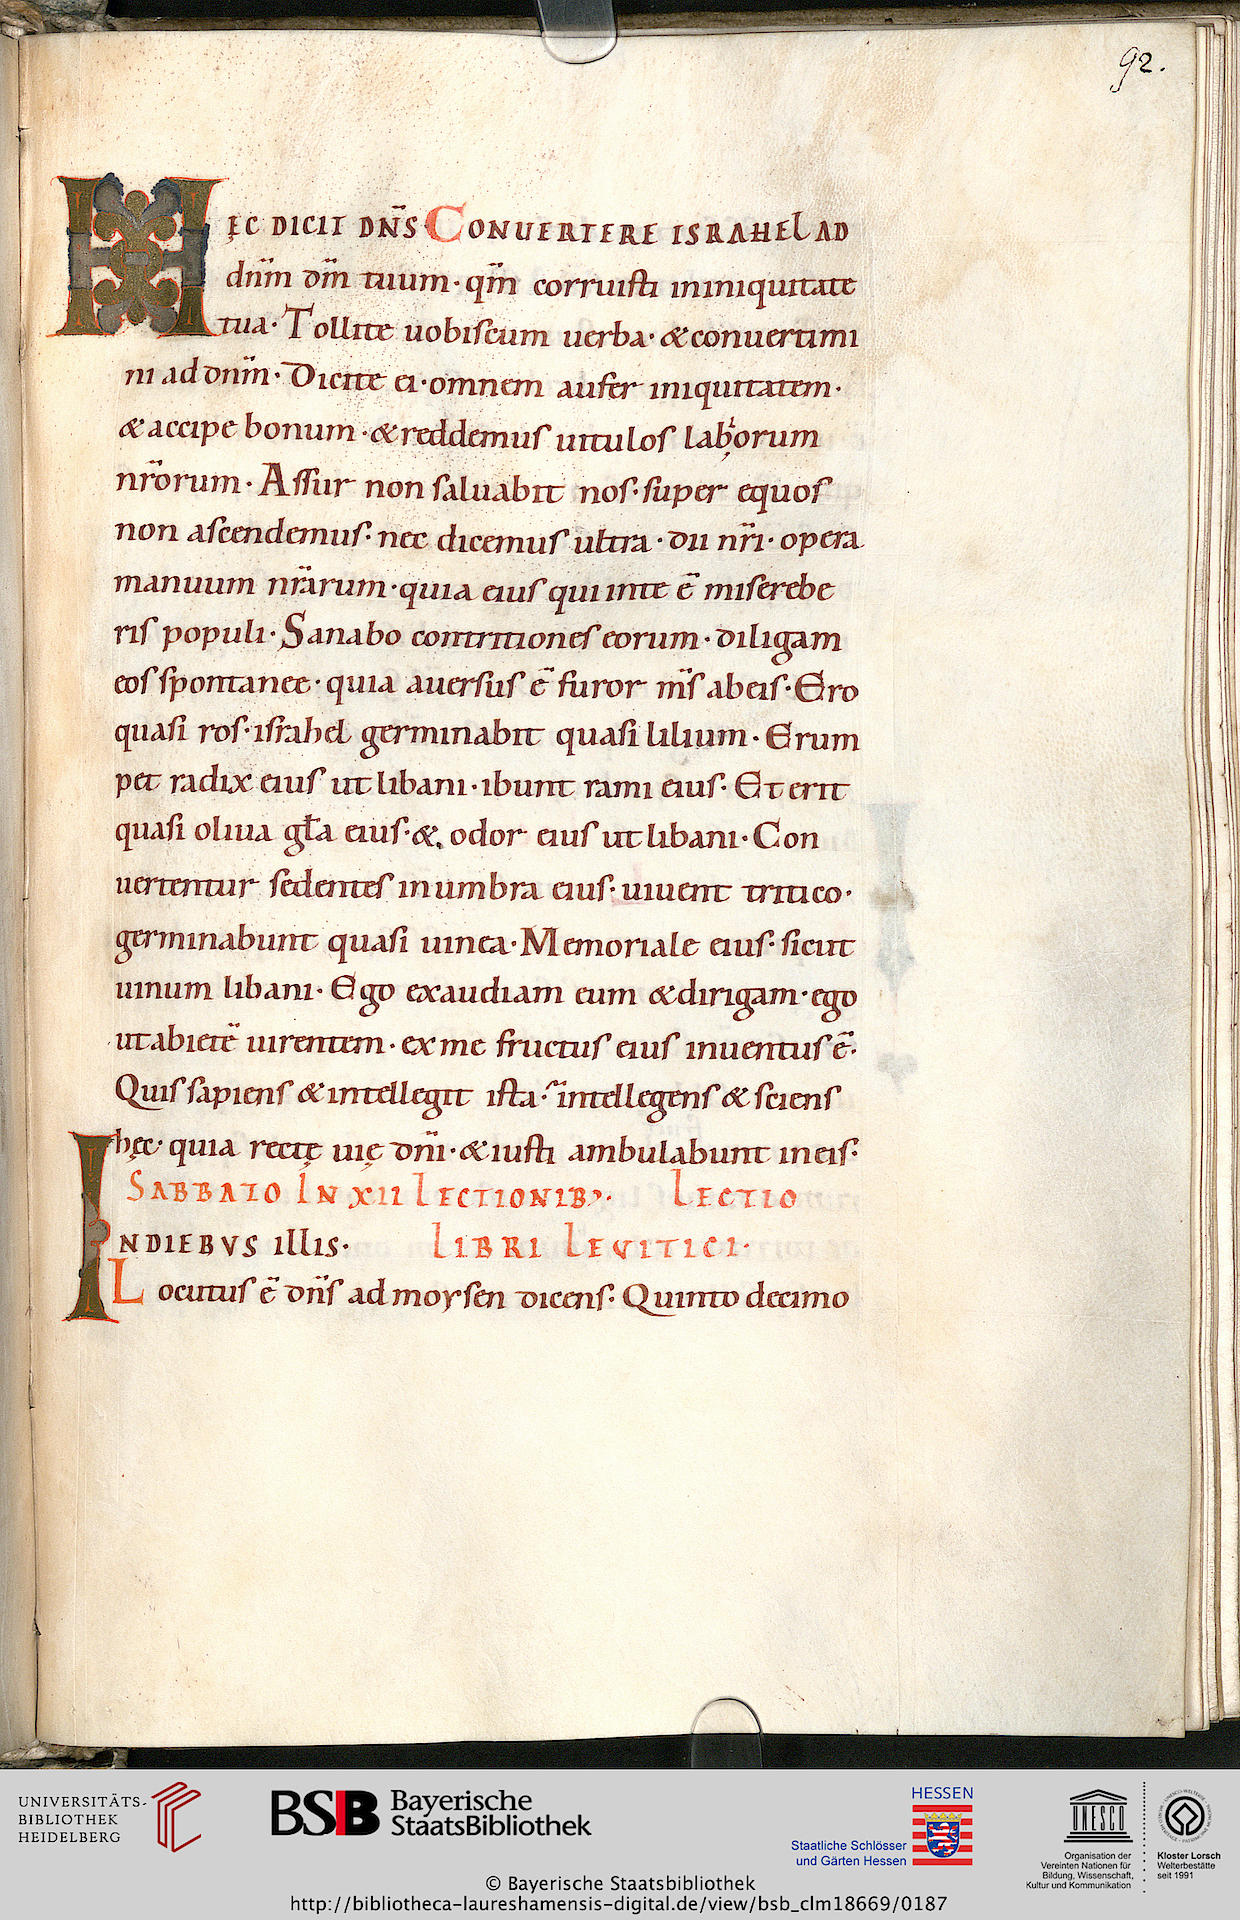 92.
HĘC DICIT DN̄S CONUERTERE ISRAHEL AD
dn̄m dm̄ tuum· qm̄ corruisti in iniquitate
tua· Tollite uobiscum uerba· & conuertimi
ni ad dn̄m· Dicite ei· omnem aufer iniquitatem·
& accipe bonum· & reddemus uitulos laborum
nr̄orum· Assur non saluabit nos· super equos
non ascendemus· nec dicemus ultra· dii nr̄i· opera
manuum nr̄arum· quia eius qui in te ē miserebe
ris populi· Sanabo contritiones eorum· diligam
eos spontanee· quia auersus ē furor m̄s ab eis· Ero
quasi ros· israhel germinabit quasi lilium· Erum
pet radix eius ut libani· ibunt rami eius· Et erit
quasi oliua gła eius· & odor eius ut libani· Con
uertentur sedentes in umbra eius· uiuent tritico·
germinabunt quasi uinea· Memoriale eius· sicut
uinum libani· Ego exaudiam eum & dirigam· ego
ut abietē uirentem· ex me fructus eius inuentus ē·
Quis sapiens & intelleget ista· intellegens & sciens
hęc· quia rectę uię dn̄i· & iusti ambulabunt in eis·
SABBATO IN XII LECTIONIB; LECTIO
IN DIEBVS ILLIS· LIBRI LEVITICI·
Locutus ē dn̄s ad moysen dicens· Quinto decimo
UNIVERSITÄTS-
BIBLIOTHEK
HEIDELBERG
BSB Bayerische
StaatsBibliothek
HESSEN
Staatliche Schlösser
und Gärten Hessen
UNESCO
Organisation der
Vereinten Nationen für
Bildung, Wissenschaft,
Kultur und Kommunikation
Kloster Lorsch
Welterbestätte
seit 1991
© Bayerische Staatsbibliothek
http://bibliotheca-laureshamensis-digital.de/view/bsb_clm18669/0187